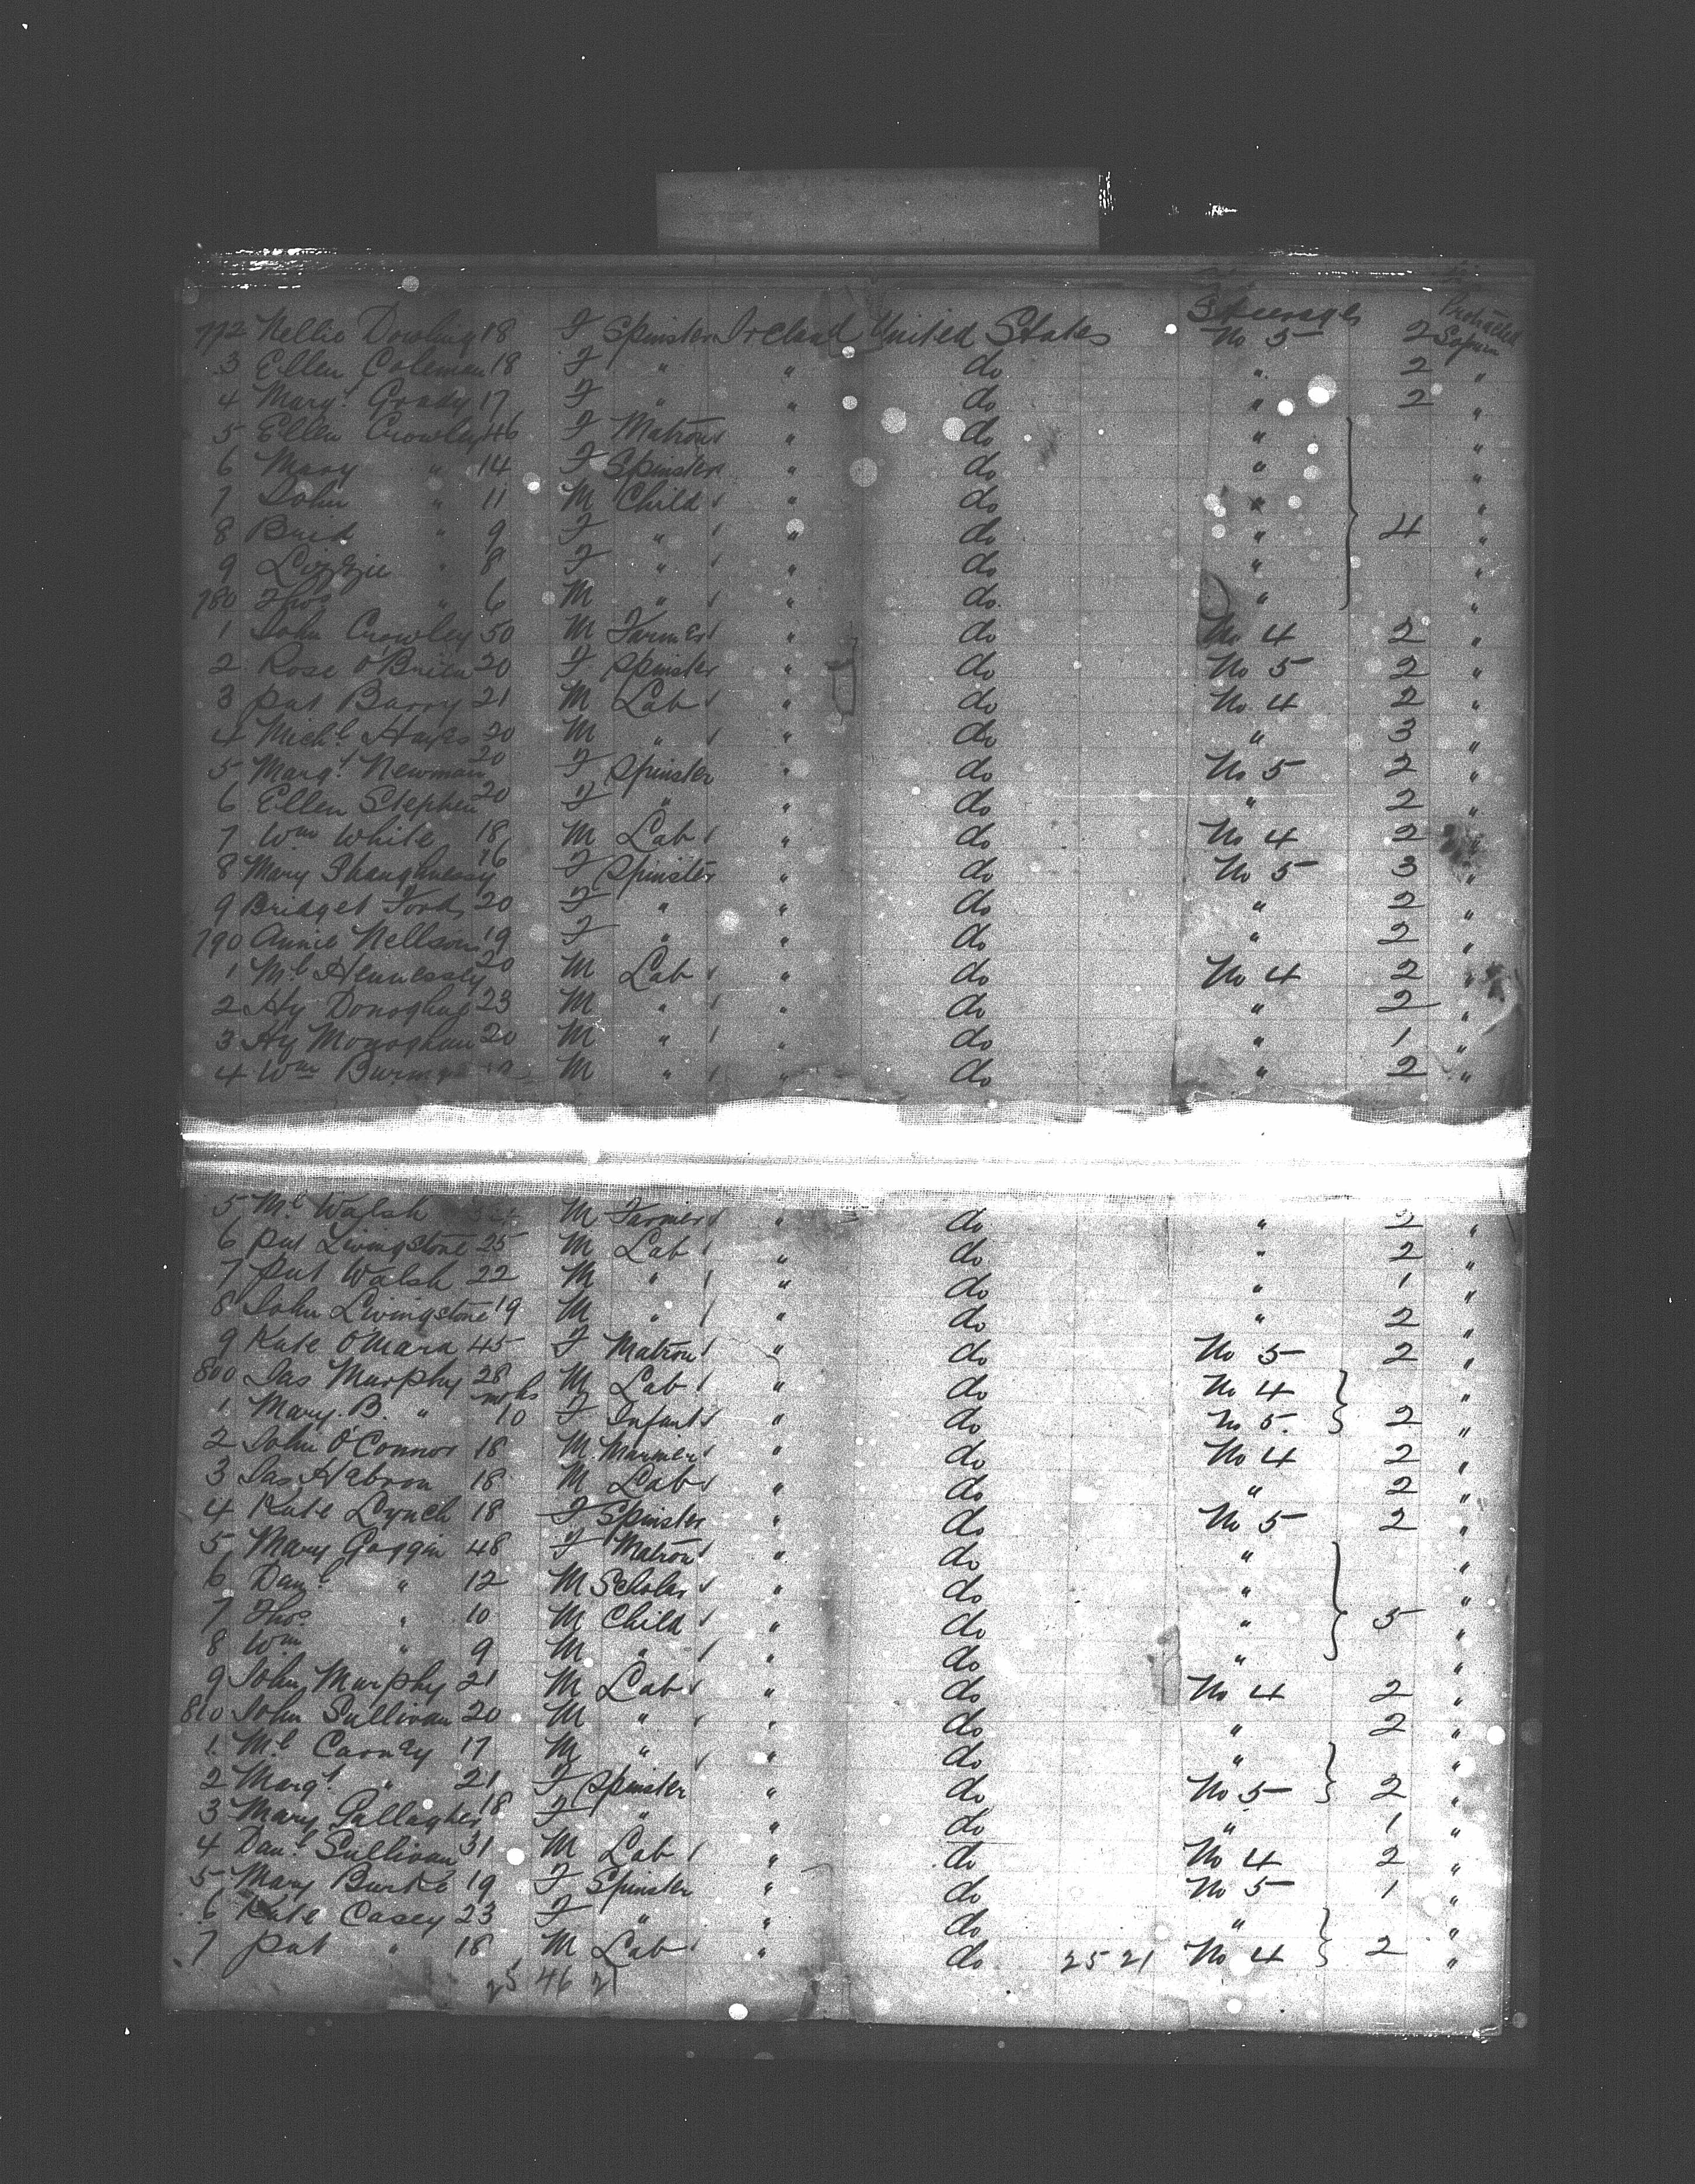 Steerage Protracted
772 Nellie Dowling 18 F Spinster Ireland United States No 5 2 Sojourn
3 Ellen Coleman 18 F " " do " 2 "
4 Margt Grady 17 F " " do " 2 "
5 Ellen Crowley 46 F Matron " do " "
6 Mary " 14 F Spinster " do " "
7 John " 11 M Child " do " "
8 Brid " 9 F " " do " 4 "
9 Lizzie " 8 F " " do " "
780 Thos " 6 M " " do " "
1 John Crowley 50 M Farmer " do No 4 2 "
2 Rose O'Brien 20 F Spinster " do No 5 2 "
3 Pat Barry 21 M Lab " do No 4 2 "
4 Michl Hayes 20 M " " do " 3 "
5 Margt Newman 20 F Spinster " do No 5 2 "
6 Ellen Stephen 20 F " " do " 2 "
7 Wm White 18 M Lab " do No 4 2 "
8 Mary Shaughnessy 16 F Spinster " do No 5 3 "
9 Bridget Foods 20 F " " do " 2 "
790 Annie Nellson 19 F " " do " 2 "
1 Ml Hennessey 20 M Lab " do No 4 2 "
2 Hy Donoghue 23 M " " do " 2 "
3 Hy Monoghan 20 M " " do " 1 "
4 Wm M " " do " 2 "
5 Ml Walsh M Farmer " do " 2 "
6 Pat Livingstone 25 M Lab " do " 2 "
7 Pat Walsh 22 M " " do " 1 "
8 John Livingstone 19 M " " do " 2 "
9 Kate O'Mara 45 F Matron " do No 5 2 "
800 Jas Murphy 28 M Lab " do No 4 "
1 Mary B. " mths 10 F Infant " do No 5. 2 "
2 John O'Connor 18 M " do No 4 2 "
3 Jas Hebron 18 M Lab " do " 2 "
4 Kate Lynch 18 F Spinster " do No 5 2 "
5 Mary Goggin 48 F Matron " do " "
6 Danl " 12 M Scholar " do " "
7 Thos " 10 M Child " do " 5 "
8 Wm " 9 M " " do " "
9 John Murphy 21 M Lab " do No 4 2 "
810 John Sullivan 20 M " " do " 2 "
1 Ml Carney 17 M " " do " "
2 Margt " 21 F Spinster " do No 5 2 "
3 Mary Gallagher 18 F " " do " 1 "
4 Danl Sullivan 31 M Lab " do No 4 2 "
5 Mary Burke 19 F Spinster " do No 5 1 "
6 Kate Casey 23 F " " do " "
7 Pat " 18 M Lab " do 25 21 No 4 2 "
25 46 21